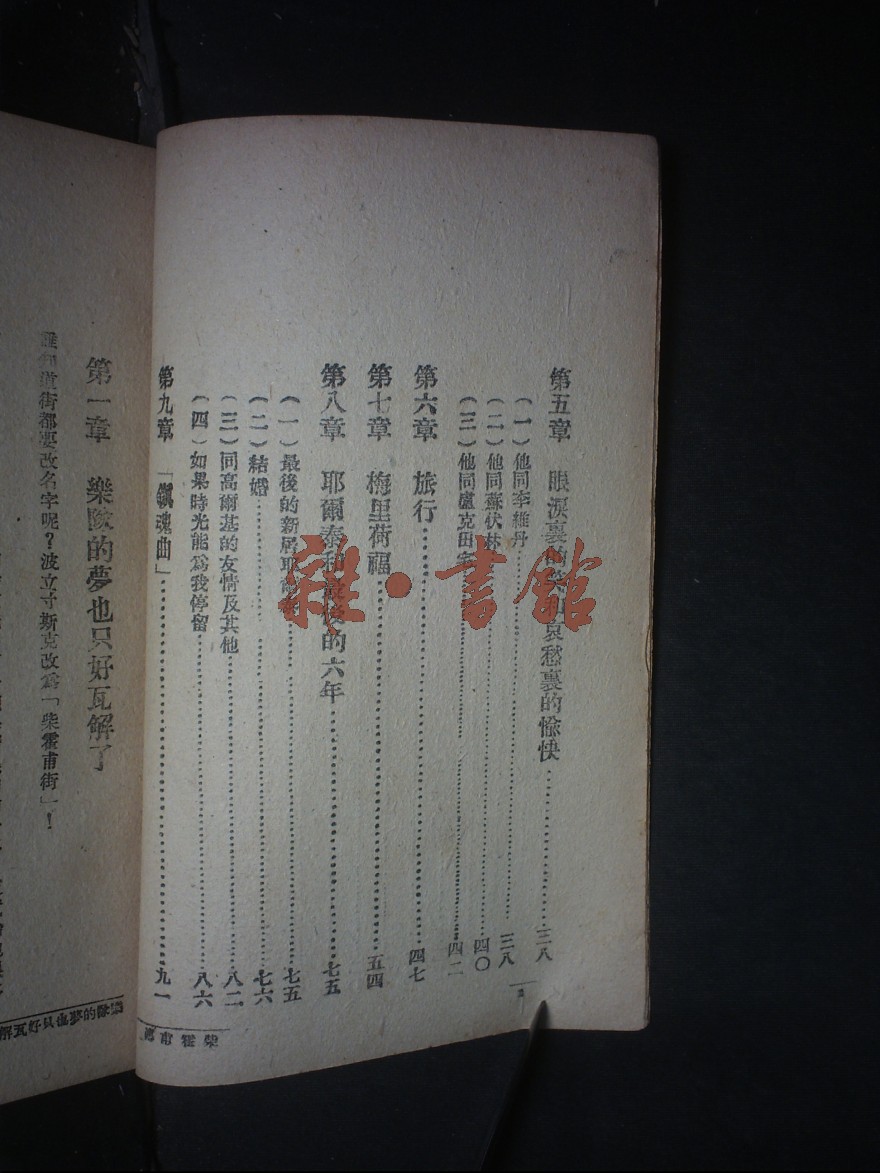 第五章 眼淚裏的笑和哀愁裏的愉快 三八
(一)他同李維丹 三八
(二)他同蘇伏林 四〇
(三)他同盧克田 四二
第六章 旅行 四七
第七章 梅里荷福 五四
第八章 耶爾泰和最後的六年 七五
(一)最後的新居耶爾泰 七五
(二)結婚 七六
(三)同高爾基的友情及其他 八二
(四)如果時光能為我停留 八六
第九章 「鎮魂曲」 九一
柴霍甫
雜·書館
第一章 樂陵的夢也只好瓦解了
誰知道街都要改名字呢?波立寸斯克改為「柴霍甫街」!
的夢也只好瓦解